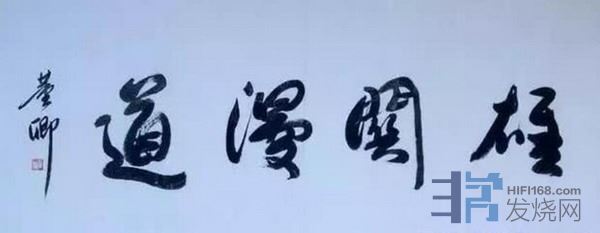 雄關漫道
董卿
HIFI168.com
发烧网